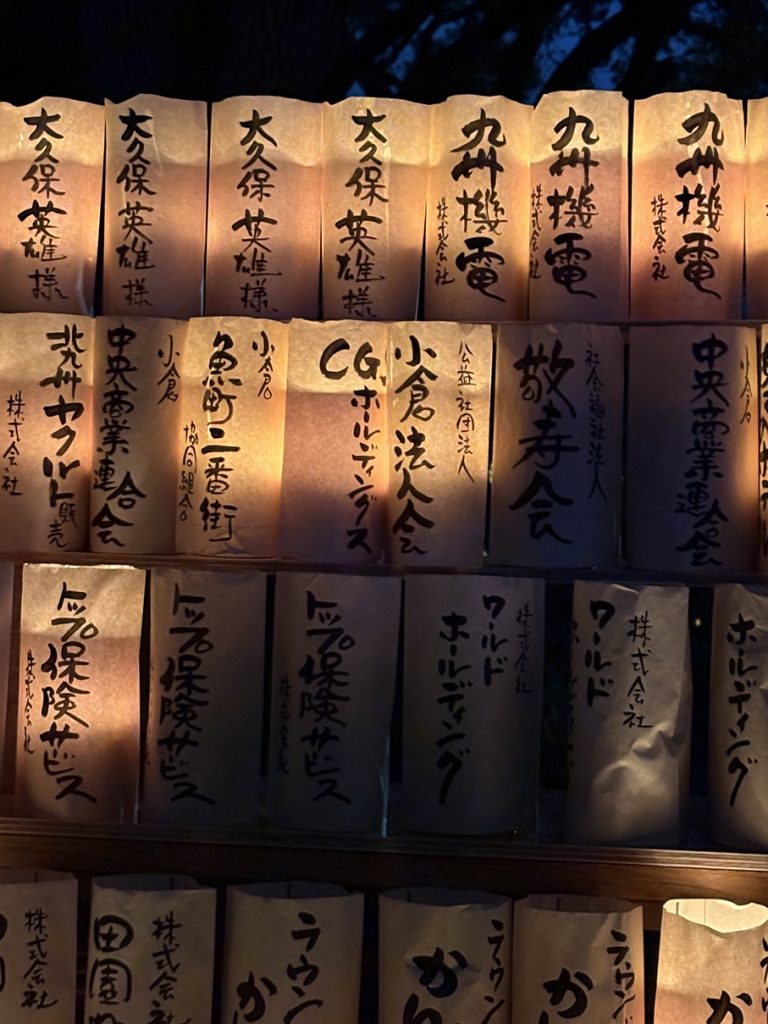 大久保英雄様
大久保英雄様
大久保英雄様
大久保英雄様
九州機電
株式会社
九州機電
株式会社
九州機電
株式会社
北九州ヤクルト販売
株式会社
小倉
中央商業連合会
小倉
魚町二番街
協同組合
CG
ホールディングス
公益社団法人
小倉法人会
社会福祉法人
敬寿会
小倉
中央商業連合会
トップ保険サービス
株式会社
トップ保険サービス
株式会社
トップ保険サービス
株式会社
株式会社
ワールド
ホールディング
株式会社
ワールド
ホールディング
株式会社
株式会社
田園
ラウン
か
ラウン
かり
ラウンド
か
か